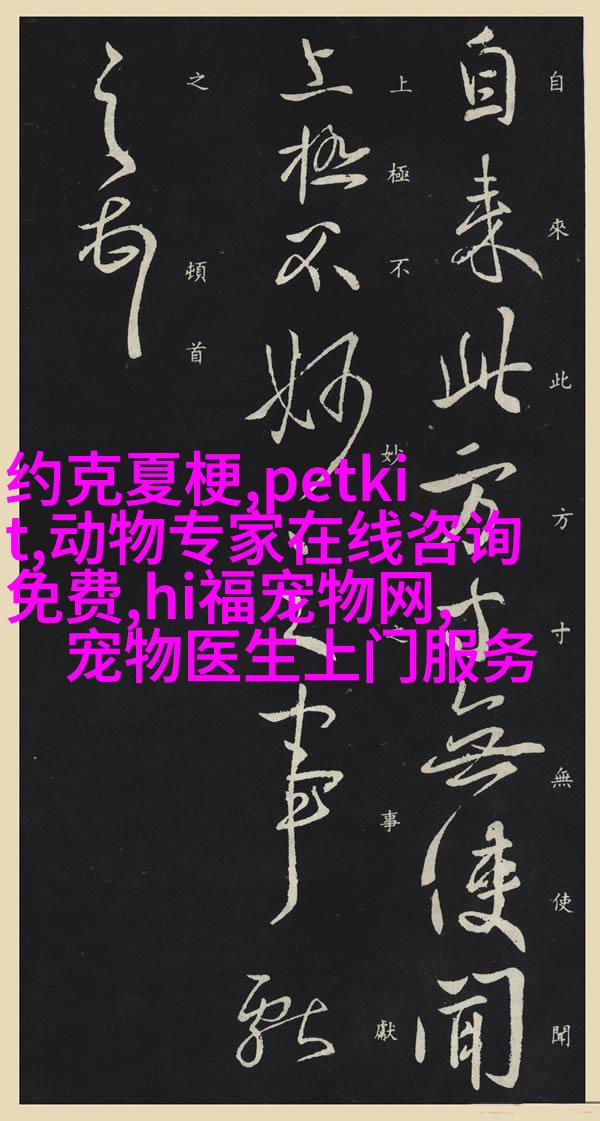 约克夏梗,petki
t,动物专家在线咨询
免费,hi福宠物网,
宠物医生上门服务
自來此方寸無使聞
自來此方寸無使聞
上極不妙之事獻
上極不妙之事獻
之頓首
之頓首